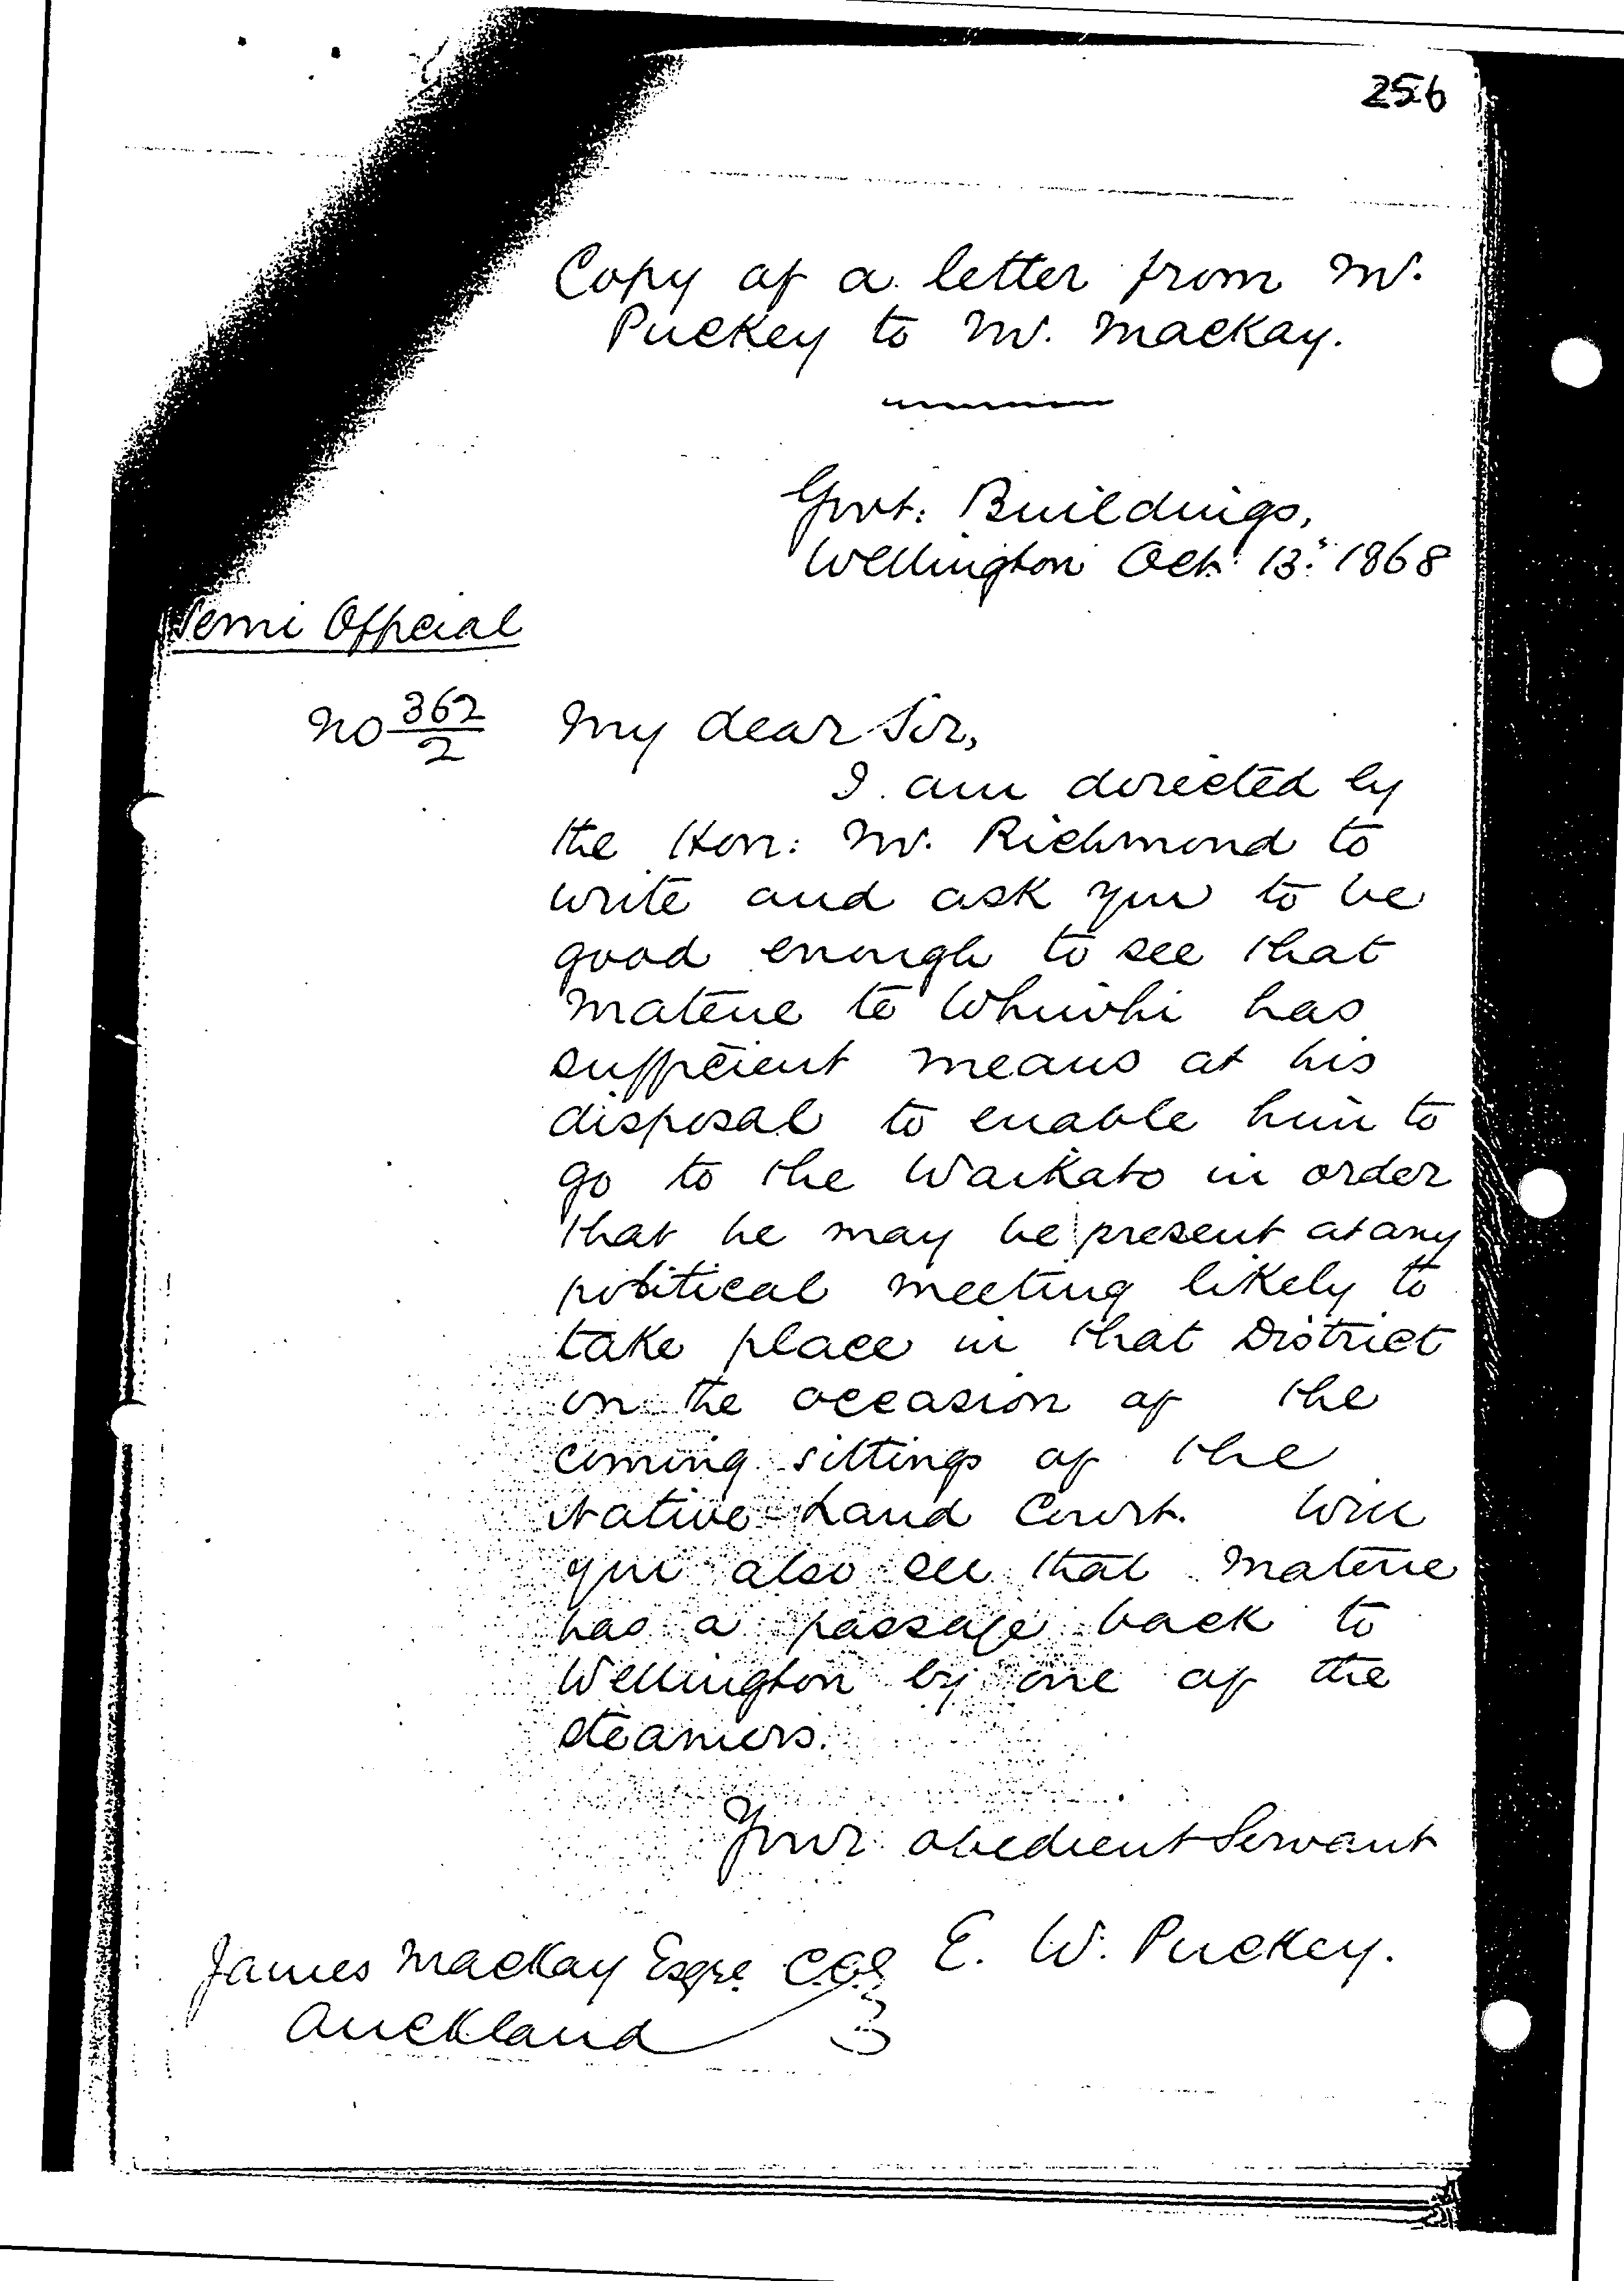 256
Copy of a letter from Mr.
Puckey to Mr. Mackay.
Govt: Buildings,
Wellington Oct: 13: 1868
Semi Official
No 362/2
My dear Sir,
I am directed by
the Hon: Mr. Richmond to
write and ask you to be
good enough to see that
Matene te Whiwhi has
sufficient means at his
disposal to enable him to
go to the Waikato in order
that he may be present at any
political meeting likely to
take place in that District
on the occasion of the
coming sittings of the
Native Land Court. Will
you also see that Matene
has a passage back to
Wellington by one of the
steamers.
Your obedient Servant
E. W. Puckey.
James Mackay Esqre.
Auckland